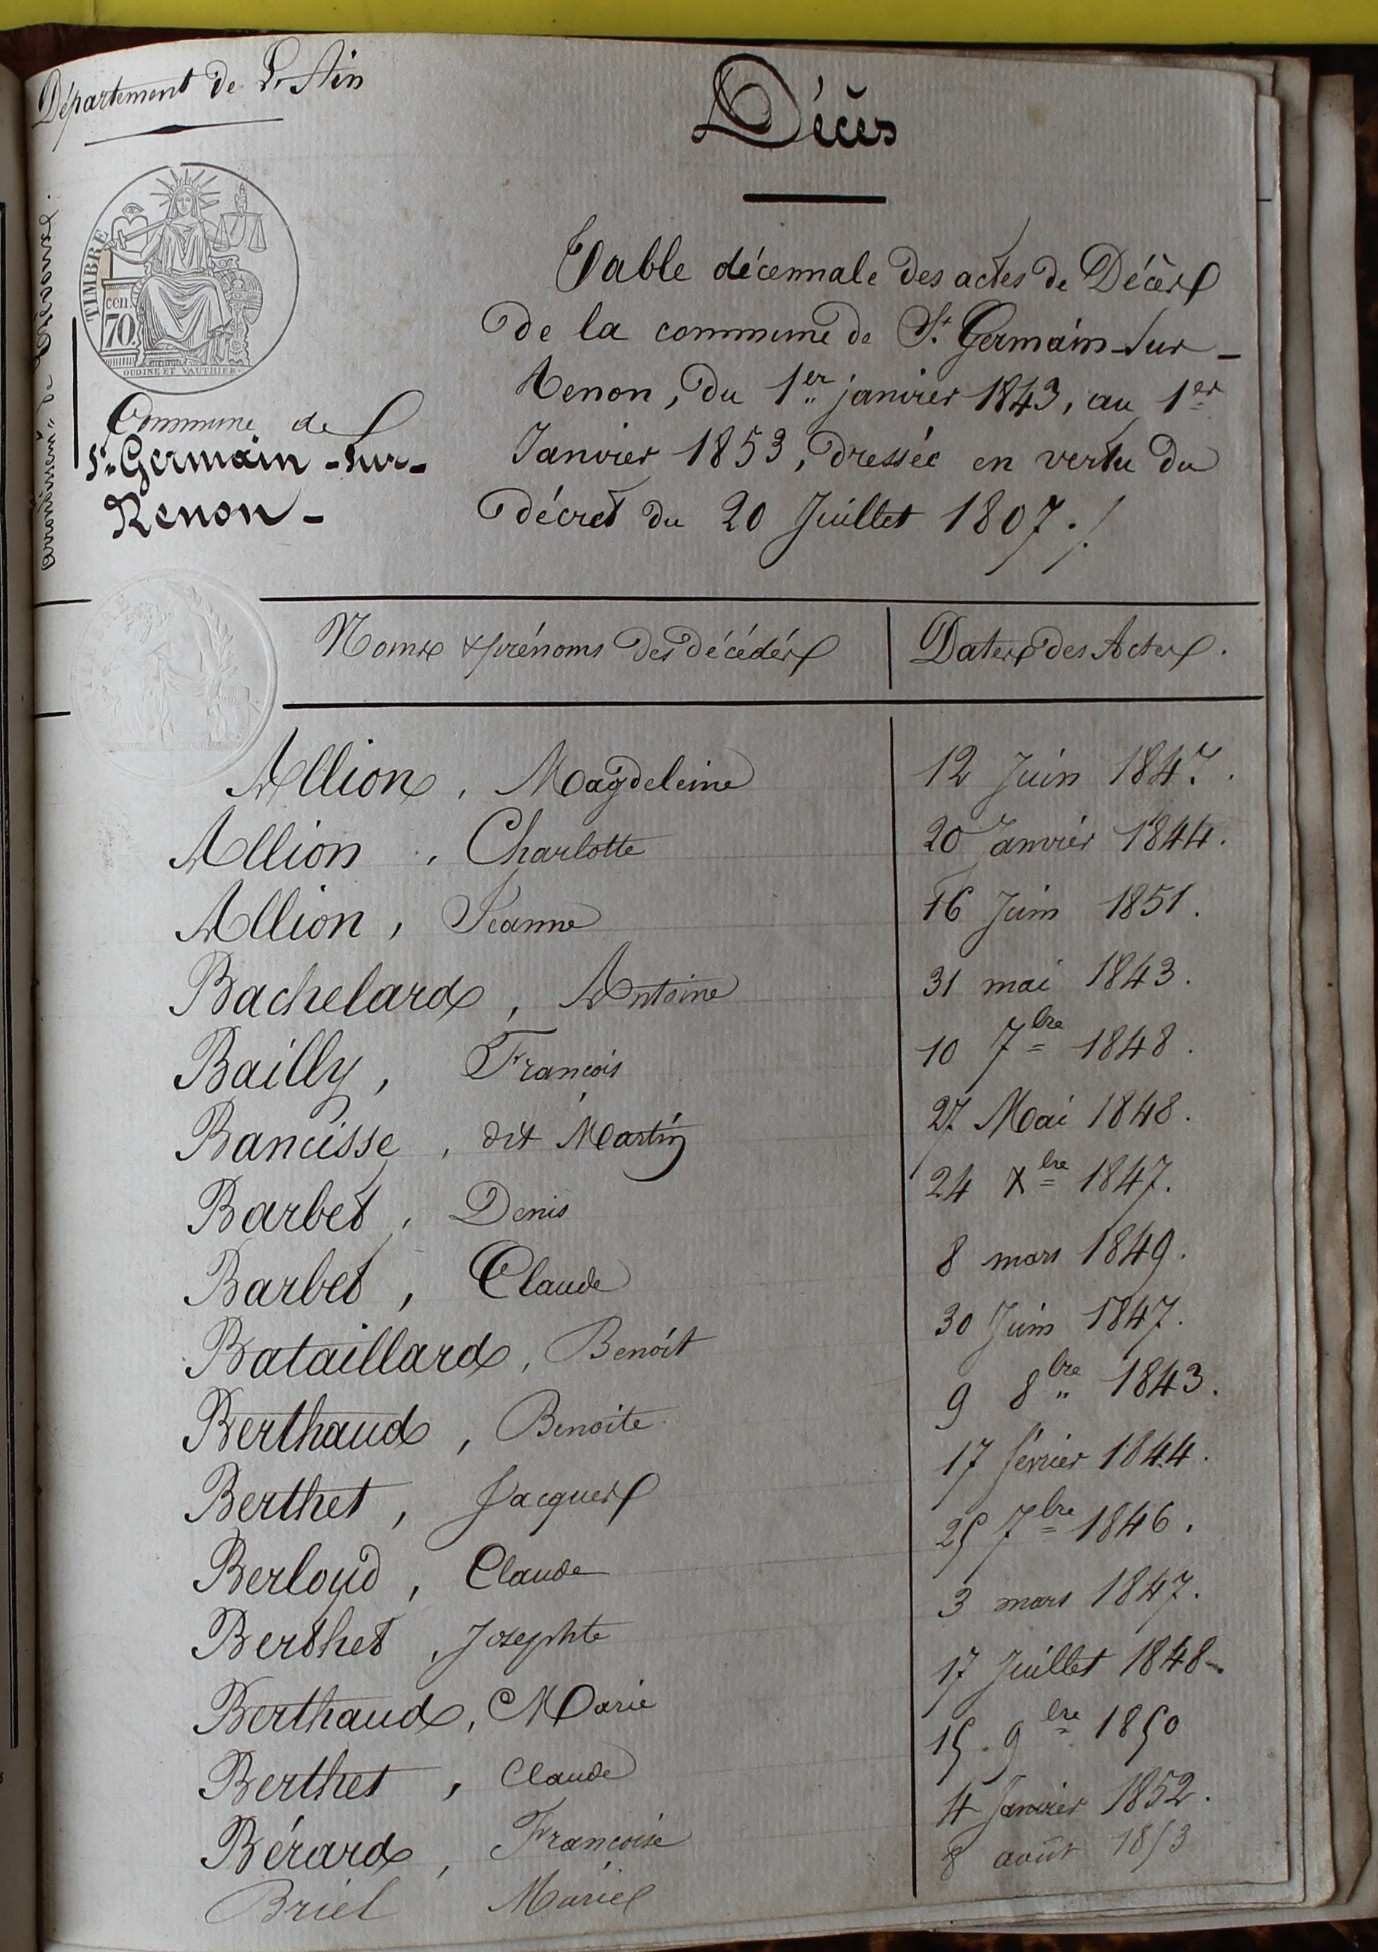 Département de L'Ain
Décès
TIMBRE
cen
70
OUDINE ET VAUTHIER
arrondissemt de Trévoux.
Commune de
St Germain-sur-
Renon-
Table décennale des actes de Décès
de la commune de St. Germain-sur-
Renon, du 1er janvier 1843, au 1er
Janvier 1853, dressée en vertu du
décret du 20 Juillet 1807./.
Noms & prénoms des décédés Dates des Actes.
Allion, Magdeleine 12 Juin 1847.
Allion, Charlotte 20 Janvier 1844.
Allion, Jeanne 16 Juin 1851.
Bachelard, Antoine 31 mai 1843.
Bailly, Francois 10 7bre 1848.
Bancisse, dit Martin 27 Mai 1848.
Barbet, Denis 24 Xbre 1847.
Barbet, Claude 8 mars 1849.
Bataillard, Benoît 30 Juin 1847.
Berthaud, Benoite 9 8bre 1843.
Berthet, Jacques 17 février 1844.
Berloud, Claude 25 7bre 1846.
Berthet, Josephte 3 mars 1847.
Berthaud, Marie 17 Juillet 1848-
Berthet, Claude 15. 9bre 1850
Bérard, Francoise 4 Janvier 1852.
Briel Marie 8 août 1853